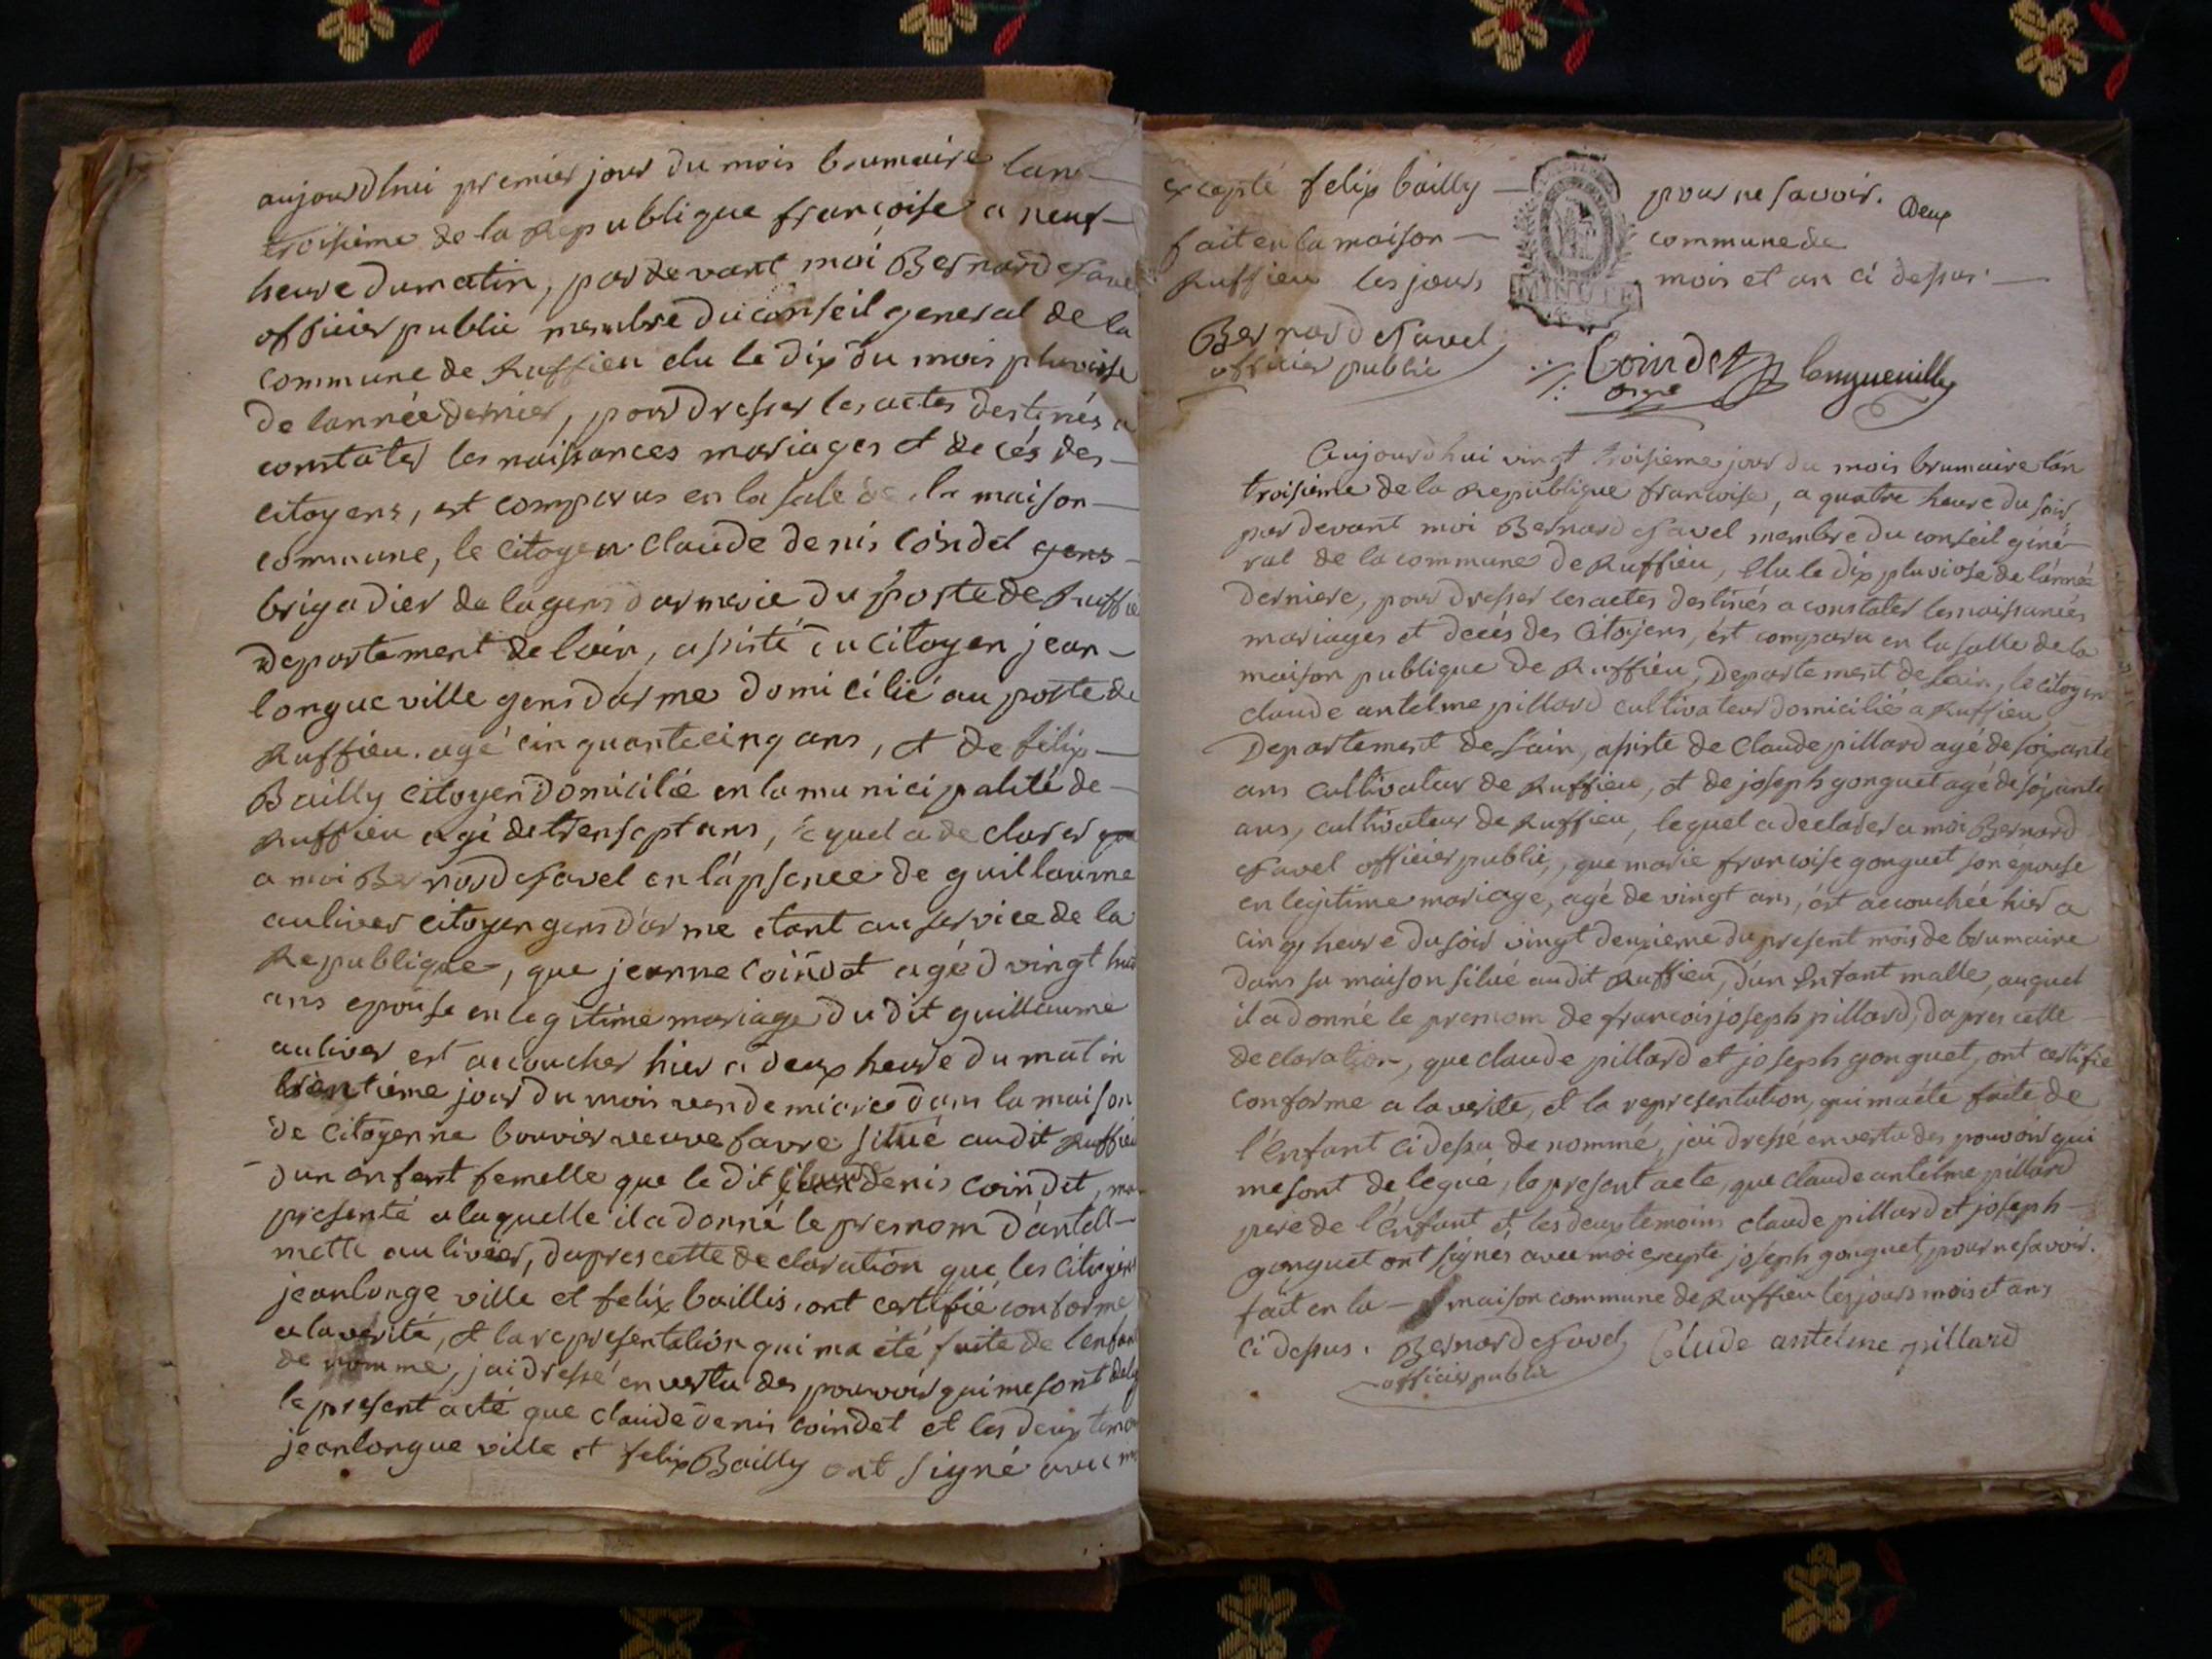 aujourdhui premier jour du mois brumaire lan
troisieme de la Republique françoise a neuf
heure dumatin, pardevant moi Bernard Savel
officier public membre du conseil general de la
commune de Ruffieu elu le dix du mois pluviose
de lannée dernier, pour dresser les actes destinés a
constater les naissances mariages et decés des
citoyens, est comparus en la sale de la maison
commune, le citoyen Claude denis Coindet gens
brigadier de la gens darmerie du poste de Ruffie
departement de lain, assisté du Citoyen jean
longueville gens darme domicilié au poste de
Ruffieu. agé cinquantecinq ans, et de felix
Bailly citoyen domicilié en la municipalité de
Ruffieu agé de trensept ans, lequel a declarer que
a moi Bernard Savel en lapsence de guillaume
auliver citoyen gens d'arme etant au service de la
Republique, que jeanne Coindet agé d vingt huit
ans epouse en legitime mariage du dit guillaume
auliver est accoucher hier a deux heure du matin
trentiéme jour du mois vendemiaire dans la maison
de Citoyenne bouvier veuve favre situé audit Ruffieu
dun enfant femelle que le dit Claude denis Coindet, ma
presenté a laquelle il a donné le prenom d'antel
mette auliver, dapres cette declaration que les Citoyens
jeanlonge ville et felix baillis, ont certifié conforme
a la verité, et la representation qui ma été faite de lenfant
de nomme, jai dressé en vertu des pouvoir qui me sont deleg
le present acte que claude denis coindet et les deux temoi
jeanlongue ville et felix Bailly ont signé avec mo
excepté felix bailly — pour ne savoir. Deux
fait en la maison — commune de
Ruffieu les jours mois et an ci dessus. —
MINUTE
Bernard Savel
officier public
Coindet longueville
Aujourdhui vingt troisieme jour du mois brumaire lan
troisieme de la Republique francoise, a quatre heure du soir,
par devant moi Bernard Savel membre du conseil géné-
ral de la commune de Ruffieu, Elu le dix pluviose de lannée
derniere, pour dresser les actes destinés a constater les naissances
mariages et decés des Citoyens, est comparu en la salle de la
maison publique de Ruffieu, Departement de Lain, le citoyen
claude antelme pillard cultivateur domicilié a Ruffieu
Departement de Lain, assisté de Claude pillard agé de soixante
ans cultivateur de Ruffieu, et de joseph gonguet agé de soixante
ans, cultivateur de Ruffieu, lequel a declarer a moi Bernard
Savel officier public, que marie francoise gonguet son épouse
en legitime mariage, agé de vingt ans, est accouchée hier a
cinq heure du soir vingt deuxieme du present mois de brumaire
dans sa maison situé audit Ruffieu, d'un Enfant malle, auquel
il a donné le prenom de francois joseph pillard, dapres cette
declaration, que claude pillard et joseph gonguet, ont certifié
conforme a la verité, et la representation, qui ma été faite de
l'Enfant ci dessu de nommé, jai dressé en vertu des pouvoir qui
me sont delegué, le present acte, que claude antelme pillard
pere de l'Enfant et les deux temoins claude pillard et joseph
gonguet ont signés avec moi excepte joseph gonguet pour ne savoir.
fait en la — maison commune de Ruffieu les jours mois et ans
ci dessus. Bernard Savel Clude antelme pillard
officier public